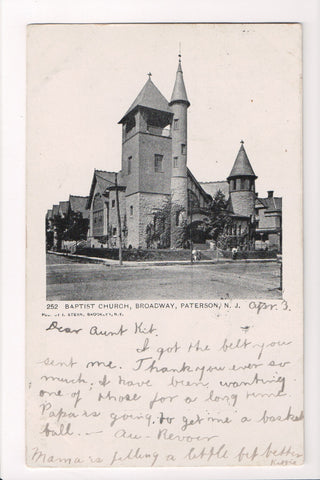 252 BAPTIST CHURCH, BROADWAY, PATERSON, N. J. Apr. 3
STERN, BROOKLYN, N.Y.
Dear Aunt Kit.
I got the belt you
sent me. Thank you ever so
much. I have been wanting
one of those for a long time.
Papa is going to get me a basket
ball. — Au-Revoir
Mama is filling a little bit better